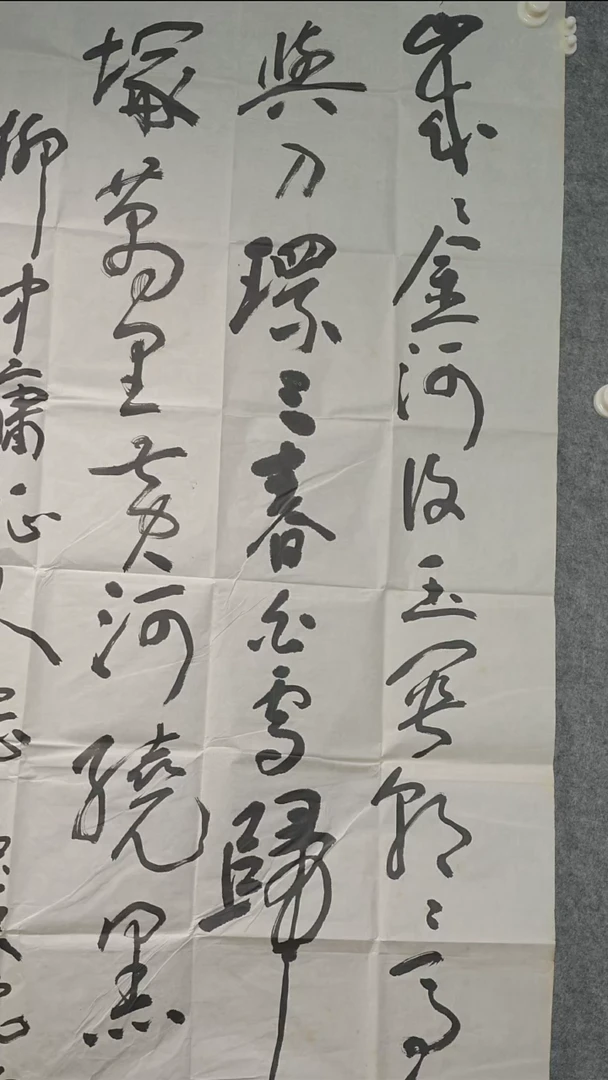 歲〻金河復玉關朝〻馬
與刀環三春白雪歸
塚萬里黃河繞黑
柳中庸征人怨